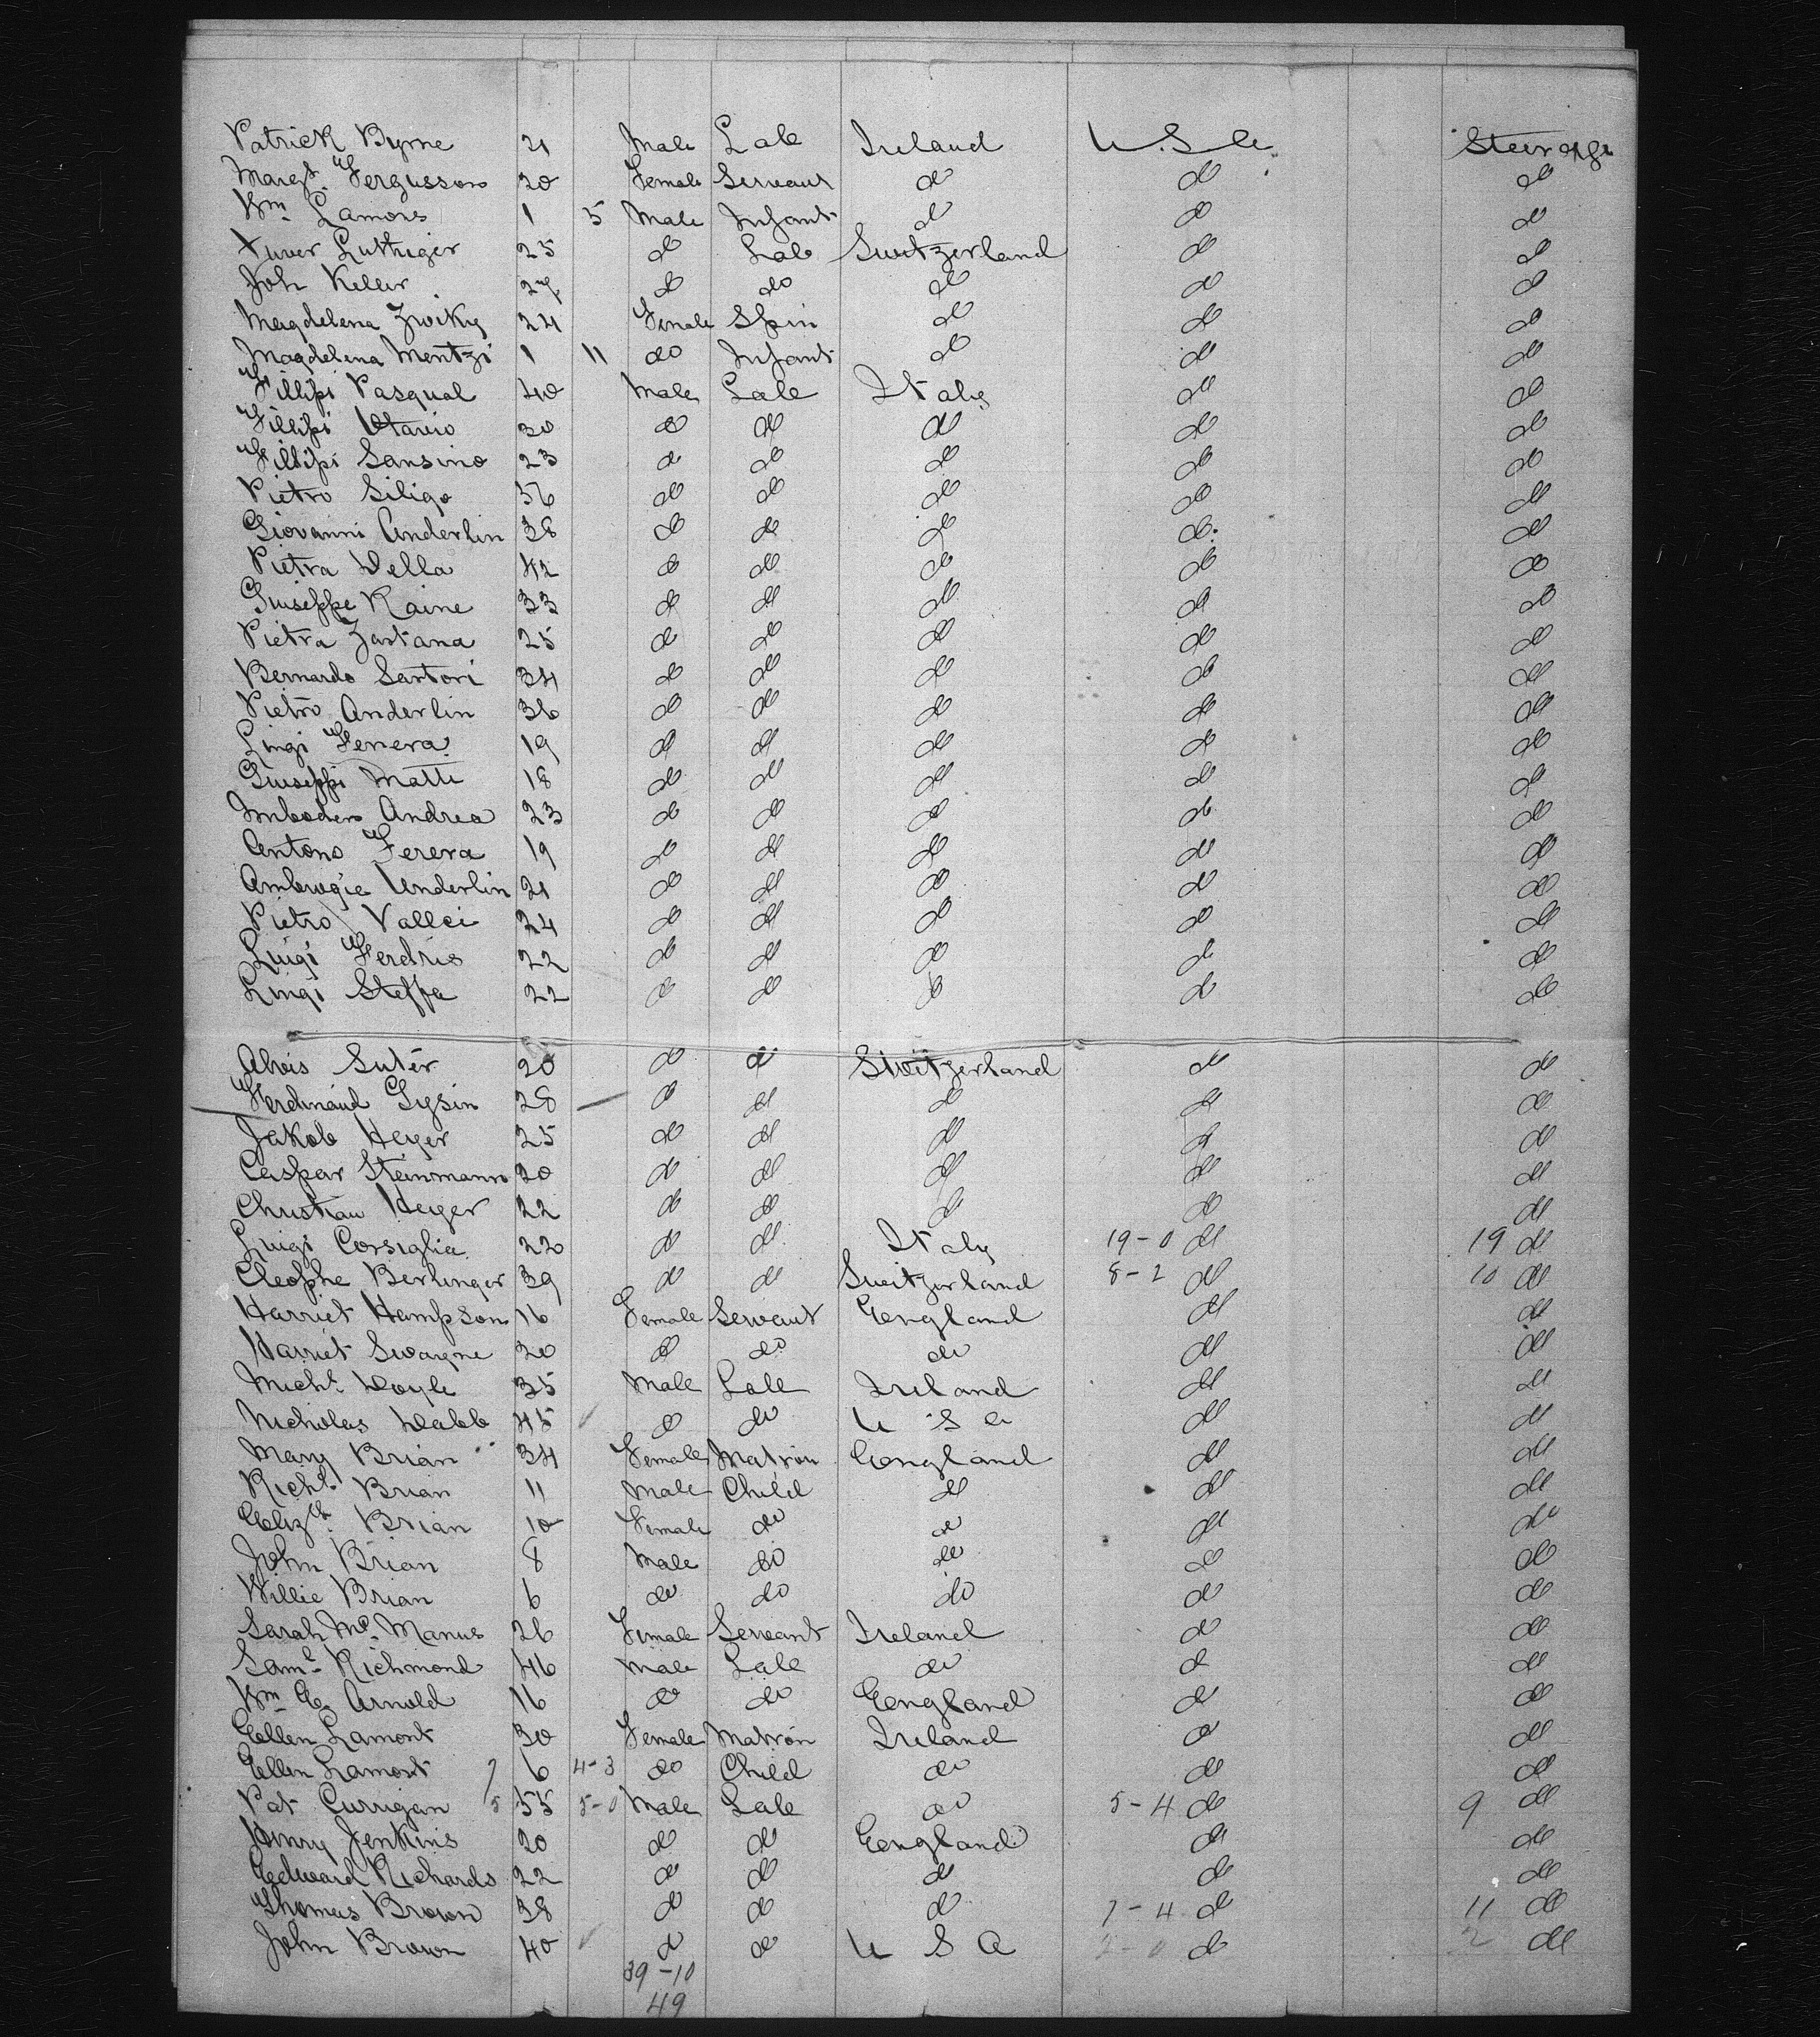 Patrick Byrne 21 Male Lab Ireland U.S.A. Steerage
Margt. Fergusson 20 Female Servant do do do
Wm Lamons 1 5 Male Infant do do do
Luthiger 25 do Lab Switzerland do do
Joh Keller 27 do do do do do
Magdelena Zwiky 24 Female Spin do do do
Magdelena Mentzi 1 11 do Infant do do do
Fillipi Pasqual 40 Male Lab Italy do do
Fillipi Otavio 30 do do do do do
Fillipi Sansino 23 do do do do do
Pietro Siligo 36 do do do do do
Giovanni Anderlin 38 do do do do do
Pietra Della 42 do do do do do
Giuseppe Raine 33 do do do do do
Pietra Zartana 25 do do do do do
Bernardo Sartori 34 do do do do do
Pietro Anderlin 36 do do do do do
Lingi Ferrera 19 do do do do do
Giuseppi Matti 18 do do do do do
Imboden Andrea 23 do do do do do
Antono Ferera 19 do do do do do
Ambrogie Underlin 21 do do do do do
Pietro Vallei 24 do do do do do
Luigi Ferdrio 22 do do do do do
Lingi Steffa 22 do do do do do
Alois Suter 20 do do Switzerland do do
Ferdinand Gysin 28 do do do do do
Jakob Heyer 25 do do do do do
Caspar Steinmann 20 do do do do do
Christian Heyer 22 do do do do do
Luigi Corsiglia 22 do do Italy 19-0 do 19 do
Cleophe Berlinger 39 do do Switzerland 8-2 do 10 do
Harriet Hampson 16 Female Servant England do do
Harriet Swayne 20 do do do do do
Michl. Doyle 35 Male Lab Ireland do do
Nicholas Dabb 45 do do U S A do do
Mary Brian 34 Female Matron England do do
Richd. Brian 11 Male Child do do do
Elizth. Brian 10 Female do do do do
John Brian 8 Male do do do do
Willie Brian 6 do do do do do
Sarah Mc Manus 26 Female Servant Ireland do do
Saml. Richmond 46 Male Lab do do do
Wm E Arnold 16 do do England do do
Ellen Lamont 30 Female Matron Ireland do do
Ellen Lamont 7 6 4-3 do Child do do do
Pat Currigan 5 55 5-0 Male Lab do 5-4 do 9 do
Henry Jenkins 20 do do England do do
Edward Richards 22 do do do do do
Thomas Brown 38 do do do 7-4 do 11 do
John Brown 40 do do U S A 2-0 do 2 do
39-10
49